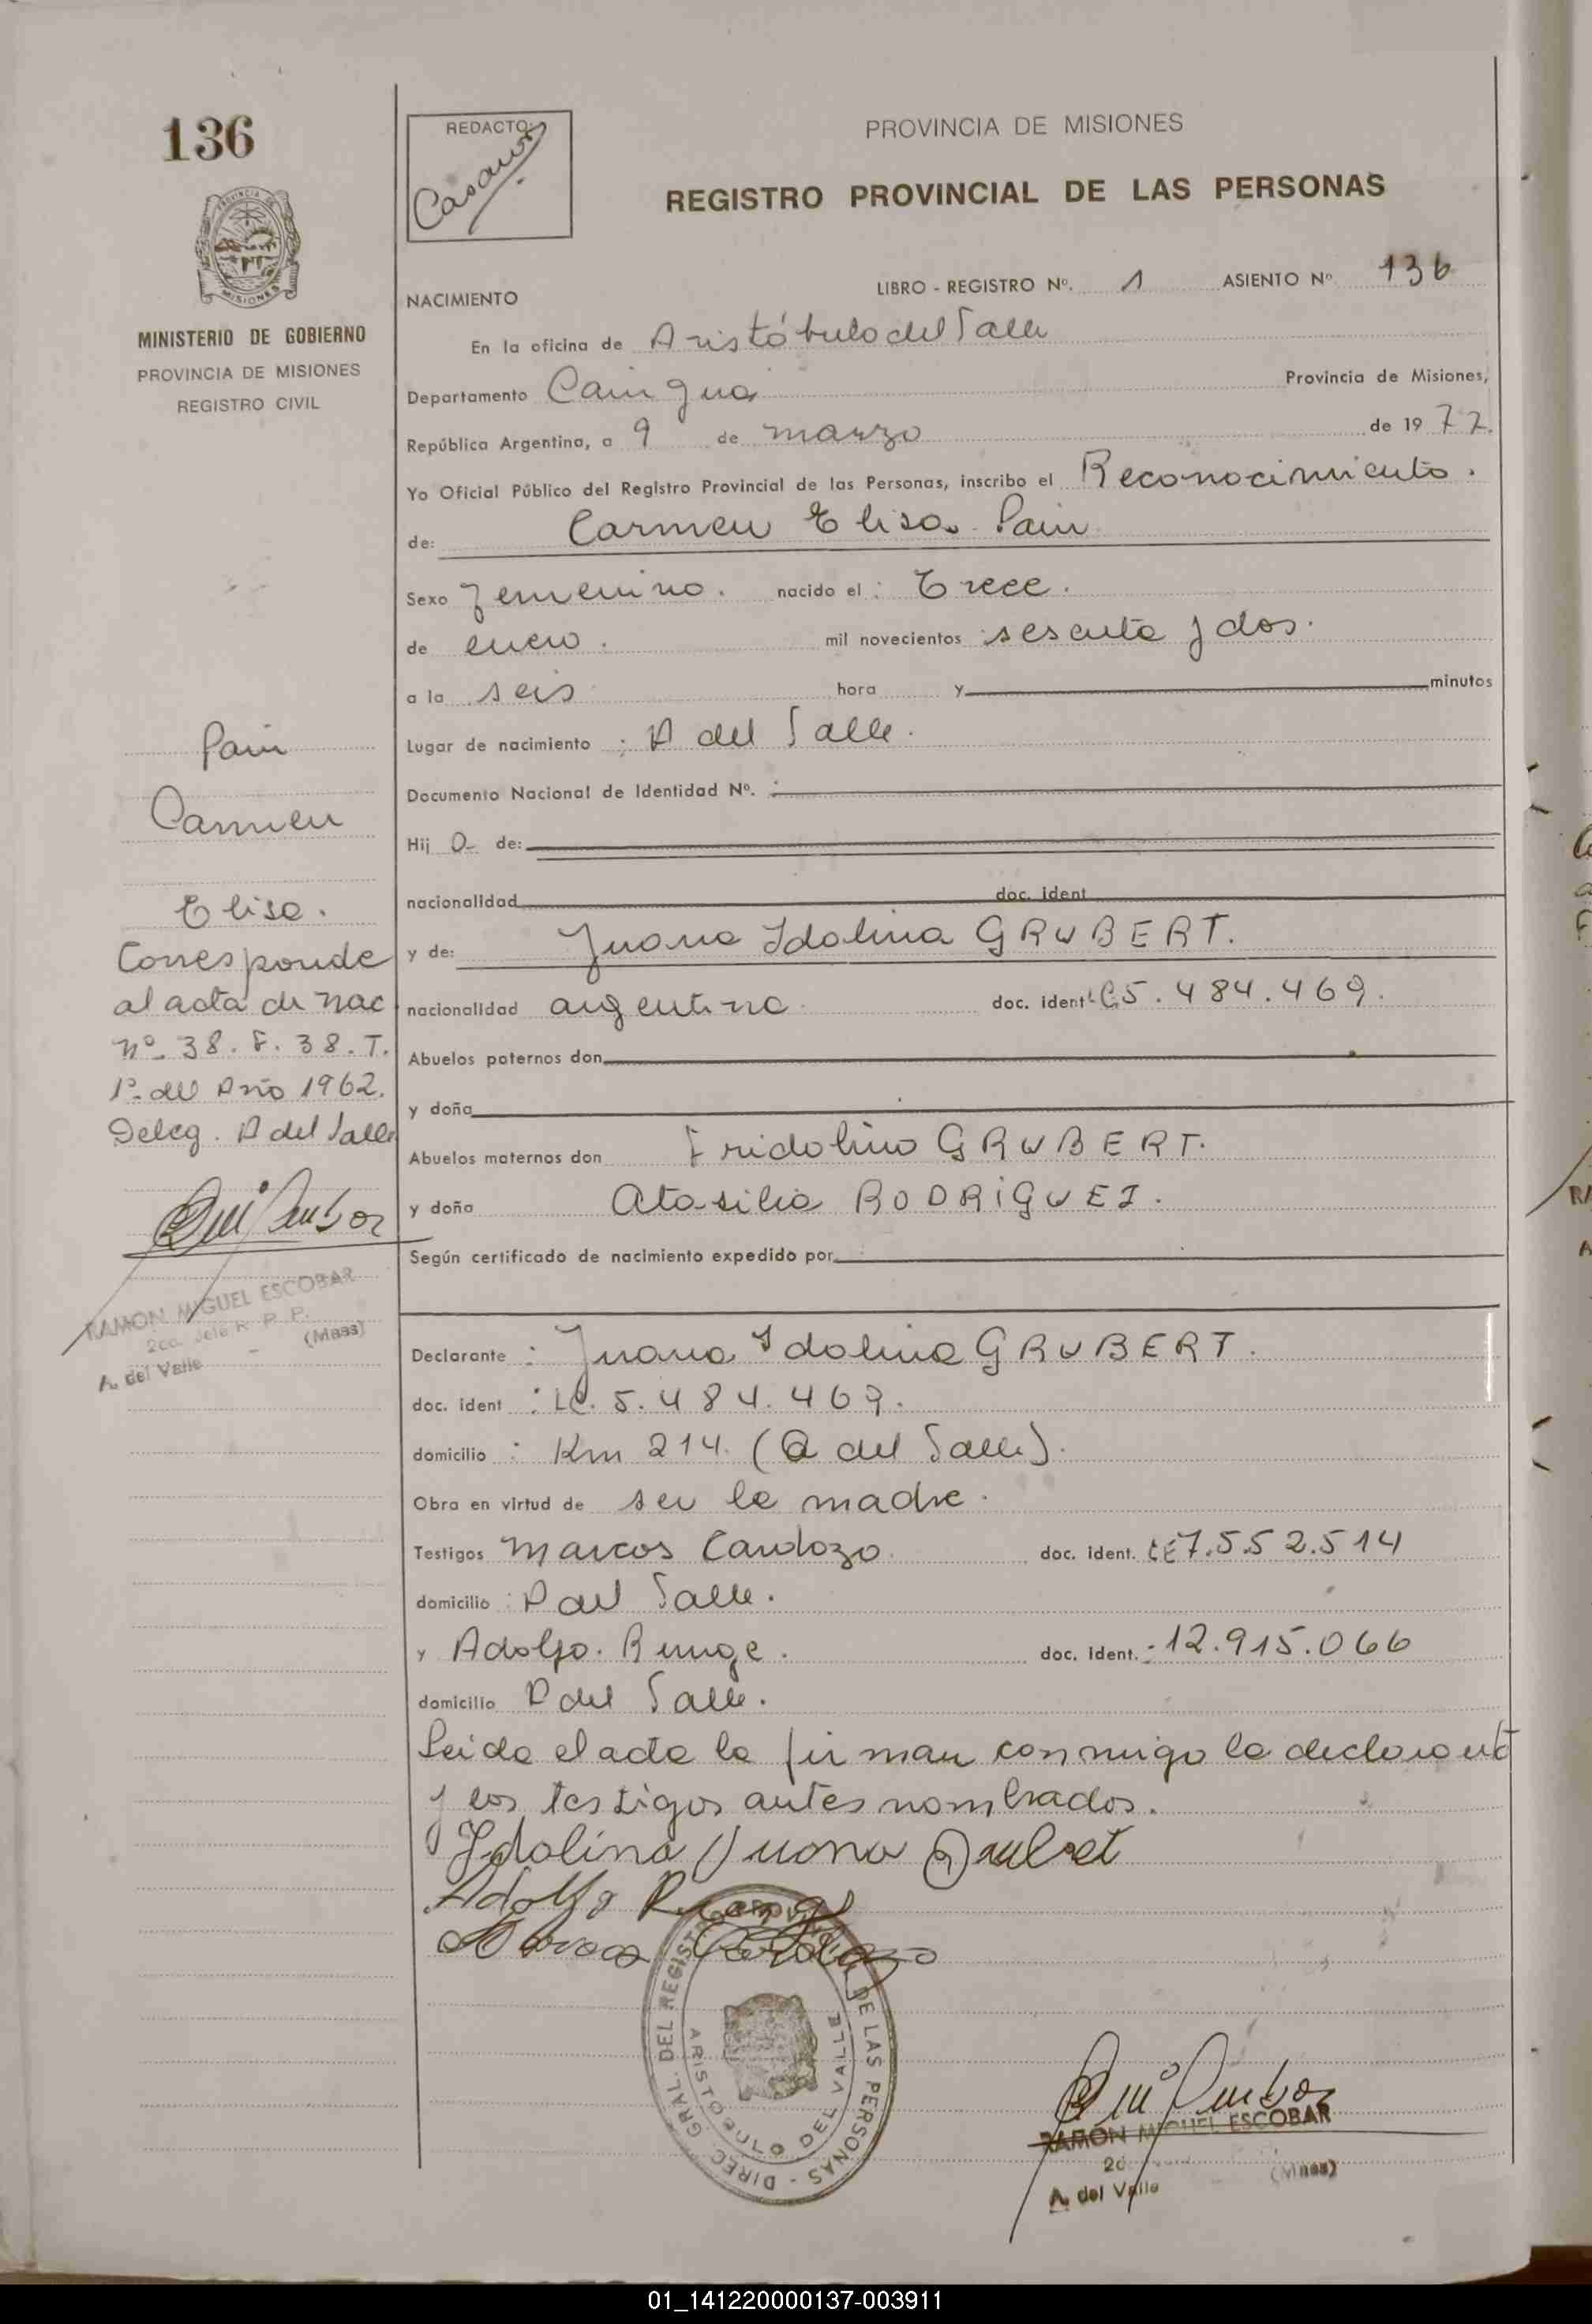 136
REDACTO:
Casano
PROVINCIA DE MISIONES
REGISTRO PROVINCIAL DE LAS PERSONAS
MISIONES
MINISTERIO DE GOBIERNO
PROVINCIA DE MISIONES
REGISTRO CIVIL
NACIMIENTO
LIBRO - REGISTRO Nº. 1 ASIENTO Nº 136
En la oficina de Aristóbulo del Valle
Departamento Cain guá Provincia de Misiones,
República Argentina, a 9 de marzo de 1972.
Yo Oficial Público del Registro Provincial de las Personas, inscribo el Reconocimiento.
de: Carmen Elisa Pain
Sexo femenino. nacido el: Trece.
de enero. mil novecientos sesenta y dos.
a la seis hora y minutos
Lugar de nacimiento : A del Valle.
Documento Nacional de Identidad Nº. :
Hij a de:
nacionalidad doc. ident
y de: Juana Idolina GRUBERT.
nacionalidad argentina doc. ident LC 5.484.469.
Abuelos paternos don
y doña
Abuelos maternos don Fridolino GRUBERT.
y doña Atasilia RODRIGUEZ.
Según certificado de nacimiento expedido por
Pain
Carmen
Elisa.
Corresponde
al acta de nac
nº 38. F. 38. T.
1º del Año 1962.
Deleg. A del Valle
RAMON MIGUEL ESCOBAR
2do. Jefe R. P. P.
A. del Valle (Mnes)
Declarante : Juana Idolina GRUBERT.
doc. ident : LC. 5.484.469.
domicilio : Km 214. (A del Valle).
Obra en virtud de ser la madre.
Testigos Marcos Cardozo doc. ident. CE 7.552.514
domicilio : A del Valle.
y Adolfo. Runge. doc. ident. : 12.915.066
domicilio A del Valle.
Leida el acta la firman conmigo la declarante
y los testigos antes nombrados.
Idolina Juana Grubert
Adolfo Runge
Marcos Cardozo
DIREC. GRAL. DEL REGISTRO PROVINCIAL DE LAS PERSONAS
ARISTOBULO DEL VALLE
RAMON MIGUEL ESCOBAR
2do (Mnes)
A. del Valle
01_141220000137-003911